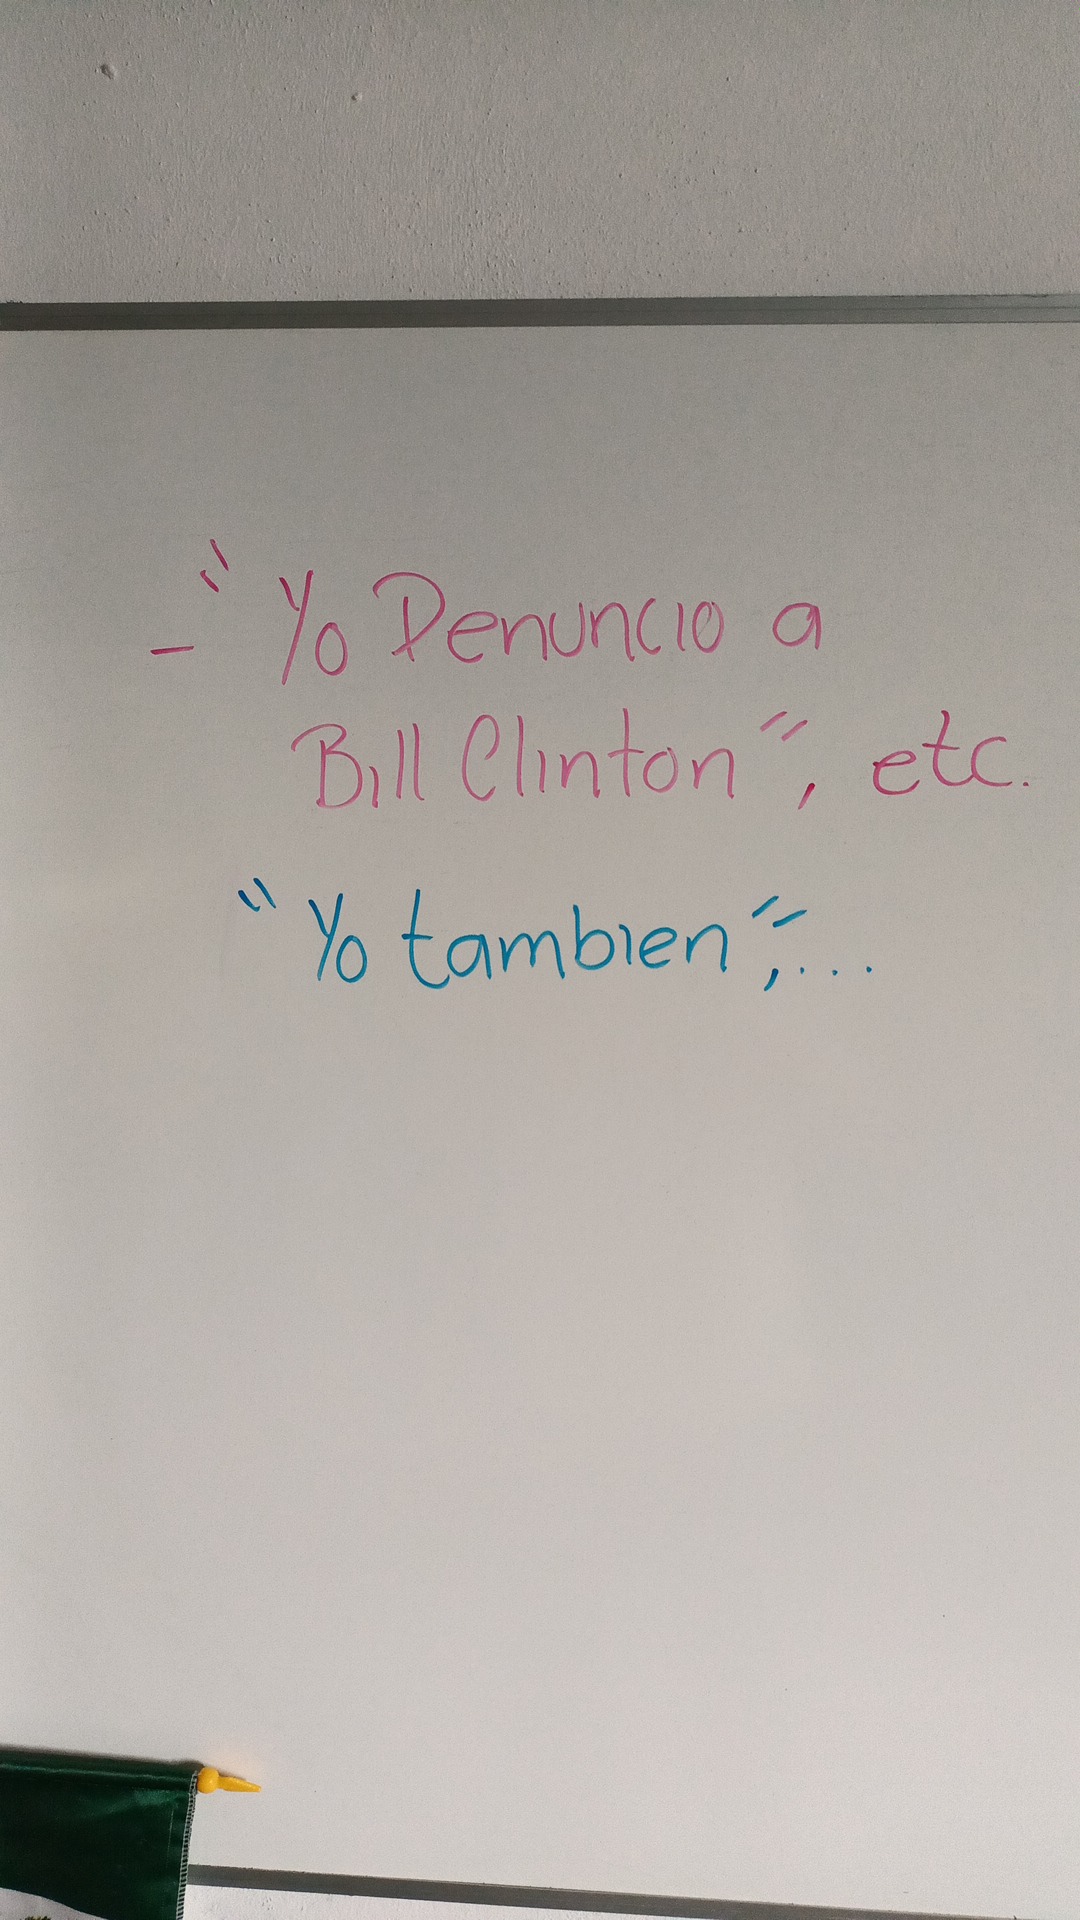 - "Yo Denuncio a
Bill Clinton", etc.
"Yo tambien",...